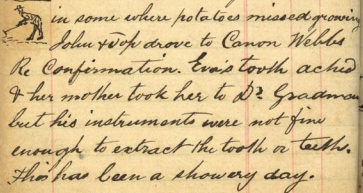 in some where potatoes missed growing
John & Pop drove to Canon Webbs
Re Confirmation. Eva's tooth ached
& her mother took her to Dr. Gradman
but his instruments were not fine
enough to extract the tooth or teeth.
This has been a showery day.